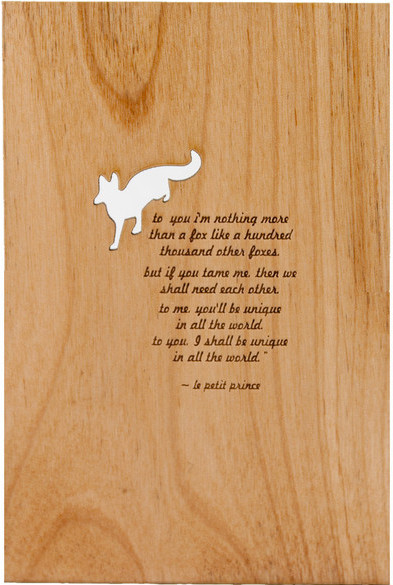 to you i'm nothing more
than a fox like a hundred
thousand other foxes.
but if you tame me, then we
shall need each other.
to me, you'll be unique
in all the world.
to you, I shall be unique
in all the world."
~ le petit prince